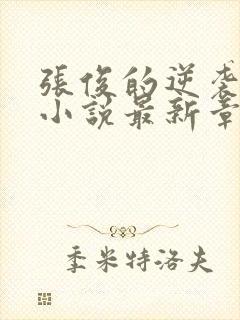 張俊的逆襲
小說最新章
季米特洛夫